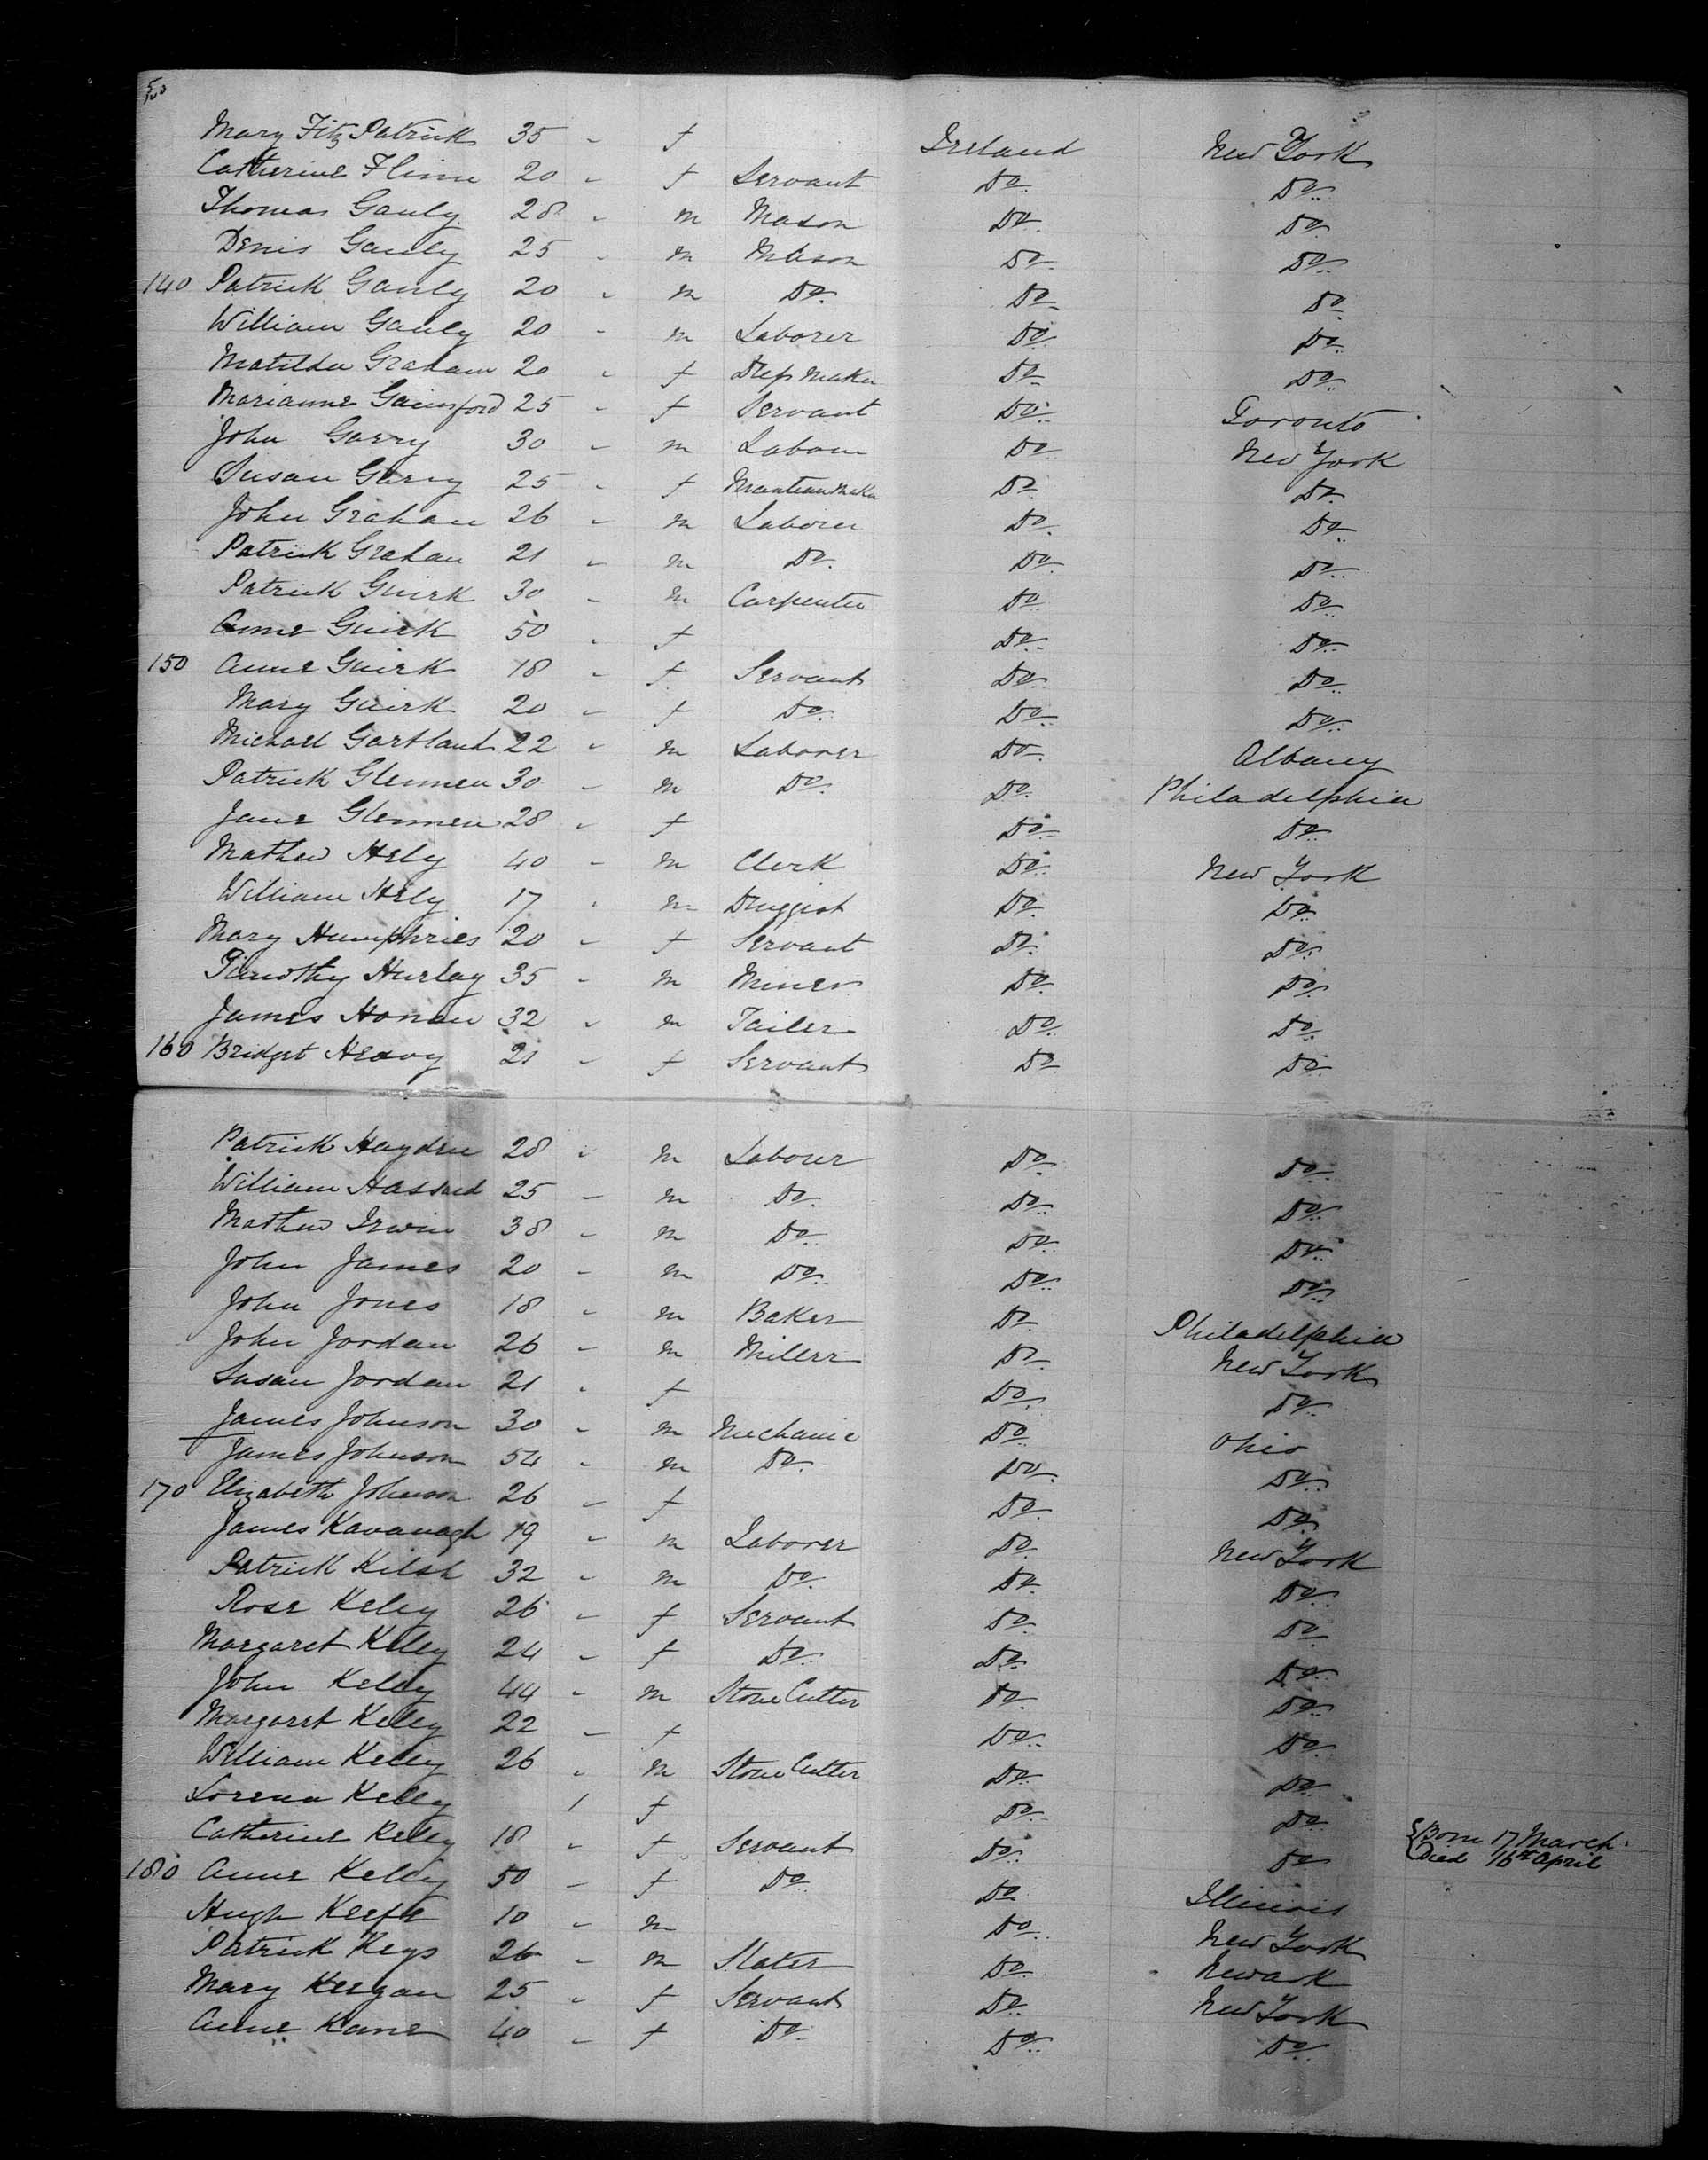 Mary Fitz Patrick 35 " f Ireland New York
Catherine Flinn 20 " f Servant Do Do
Thomas Gauly 28 " m Mason Do Do
Denis Gauly 25 " m Mason Do Do
140 Patrick Gauly 20 " m Do Do Do
William Gauly 20 " m Laborer Do Do
Matilda Graham 20 " f Dress Maker Do Do
Marianne Gainsford 25 " f Servant Do Toronto
John Garry 30 " m Laborer Do New York
Susan Garry 25 " f Mantean Maker Do Do
John Graham 26 " m Laborer Do Do
Patrick Graham 21 " m Do Do Do
Patrick Guirk 30 " m Carpenter Do Do
Anne Guirk 50 " f Do Do
150 Anne Guirk 18 " f Servant Do Do
Mary Guirk 20 " f Do Do Do
Michael Gartland 22 " m Laborer Do Albany
Patrick Glennen 30 " m Do Do Philadelphia
Jane Glennen 28 " f Do Do
Mathew Hely 40 " m Clerk Do New York
William Hely 17 " m Druggist Do Do
Mary Humphries 20 " f Servant Do Do
Timothy Hurlay 35 " m Miner Do Do
James Honan 32 " m Tailer Do Do
160 Bridget Heavy 21 " f Servant Do Do
Patrick Hayden 28 " m Laborer Do Do
William Hassard 25 " m Do Do Do
Mathew Irwin 38 " m Do Do Do
John James 20 " m Do Do Do
John Jones 18 " m Baker Do Philadelphia
John Jordan 26 " m Miller Do New York
Susan Jordan 21 " f Do Do
James Johnson 30 " m Mechanic Do Ohio
James Johnson 54 " m Do Do Do
170 Elizabeth Johnson 26 " f Do Do
James Kavanagh 19 " m Laborer Do New York
Patrick 32 " m Do Do Do
Rose Kelly 26 " f Servant Do Do
Margaret Kelly 24 " f Do Do Do
John Kelly 44 " m Stone Cutter Do Do
Margaret Kelly 22 " f Do Do
William Kelly 26 " m Stone Cutter Do Do
Lorena Kelly 1 f Do Do {Born 17 March
Catherine Kelly 18 " f Servant Do Do Died 16th April
180 Anne Kelly 50 " f Do Do Illinois
Hugh Keefe 10 " m Do New York
Patrick Keys 26 " m Slater Do Newark
Mary Keegan 25 " f Servant Do New York
Anne Kane 40 " f Do Do Do